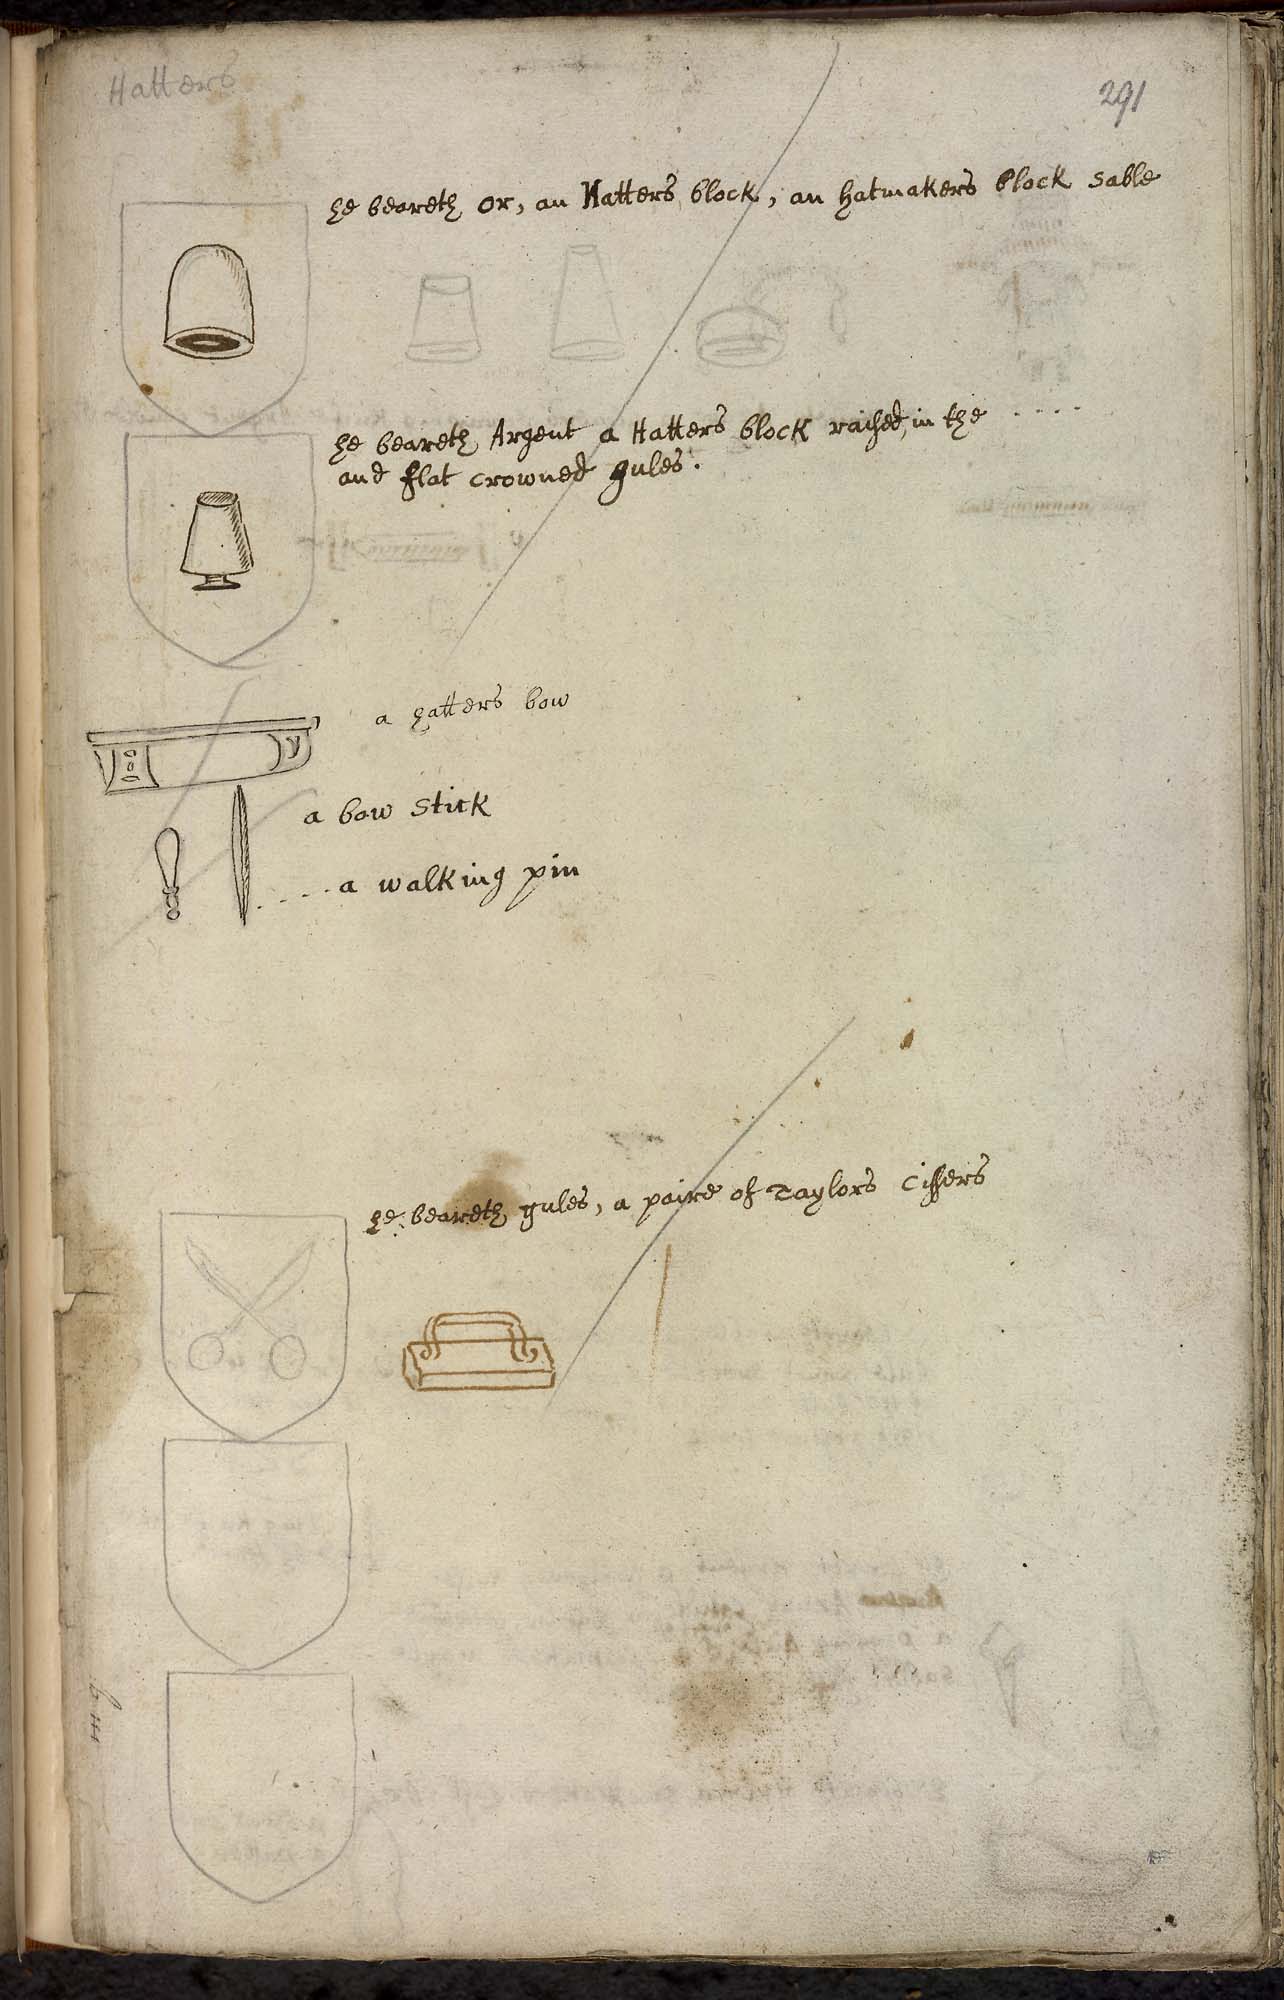 Hatters
291
he beareth or, an Hatters block, an hatmakers block sable
he beareth Argent a Hatters block raised in the ....
and flat crowned gules.
a hatters bow
a bow stick
.... a walking pin
he beareth gules, a paire of Taylors Cissers